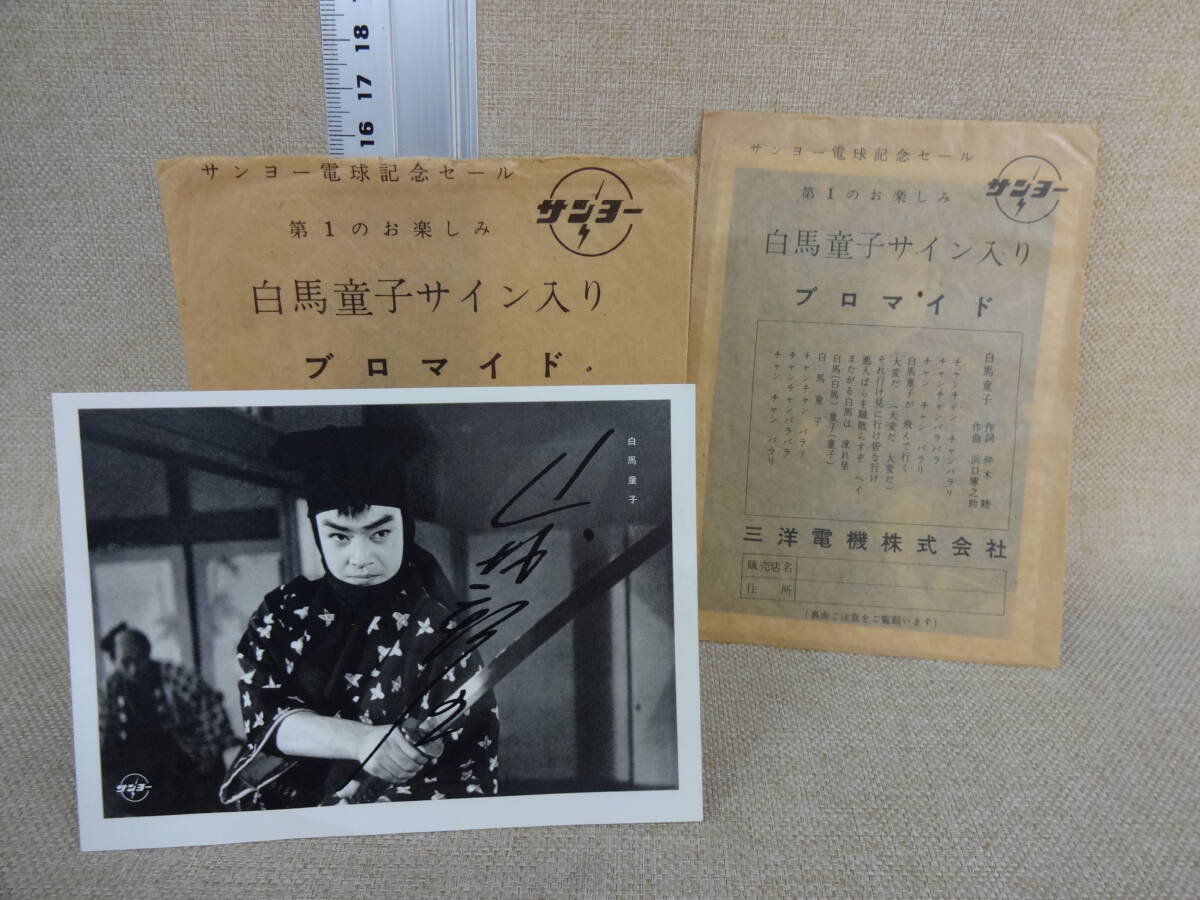 18
17
16
サンヨー電球記念セール
サンヨー
第1のお楽しみ
白馬童子サイン入り
ブロマイド
白馬童子
サンヨー
サンヨー電球記念セール
サンヨー
第1のお楽しみ
白馬童子サイン入り
ブロマイド
白馬童子 作詞 仲木 睦
作曲 浜口庫之助
チャンチャン チャンバラリ
チャンチャンバラバラ
チャン チャン バラリ
白馬童子が 飛んで行く
(大変だ (大変だ 大変だ)
それ行け見に行け皆な行け
悪人ばらを蹴散らすぞ、ヘイ
またがる白馬は 流れ星
白馬(白馬) 童子(童子)
白 馬 童 子
チャンチャン バラリ
チャンチャンバラバラ
チャン チャン バラリ
三洋電機株式会社
販売店名
住所
(裏面ご注意をご覧願います)